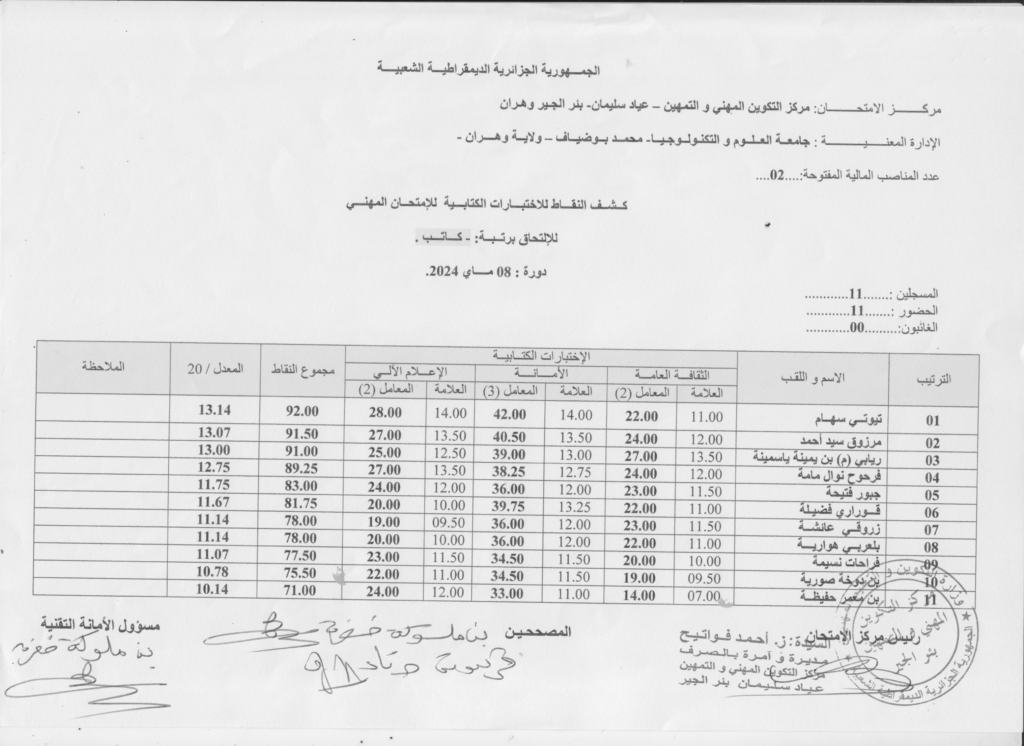 الجمـــهورية الجزائرية الديمقراطيـــة الشعبيـــة
مركـــز الامتحـــان: مركز التكوين المهني و التمهين – عياد سليمان- بئر الجير وهران
الإدارة المعنيـــة : جامعة العلـوم و التكنولـوجيـا- محمد بـوضيـاف – ولايـة وهـران -
عدد المناصب المالية المفتوحة:....02....
كـشـف النقـاط للاختبـارات الكتـابيـة للإمتحـان المهنـي
للإلتحاق برتبـة: - كـاتـب .
دورة : 08 مـاي 2024.
المسجلين :.......11............
الحضور :.......11............
الغائبون:.........00............
الترتيب | الاسم و اللقب | الإختبارات الكتـابيـة | مجموع النقاط | المعدل / 20 | الملاحظة
الثقافـة العامـة | الأمـانـة | الإعـلام الآلي
العلامة | المعامل (2) | العلامة | المعامل (3) | العلامة | المعامل (2)
01 | تيوتي سهـام | 11.00 | 22.00 | 14.00 | 42.00 | 14.00 | 28.00 | 92.00 | 13.14
02 | مرزوق سيد أحمد | 12.00 | 24.00 | 13.50 | 40.50 | 13.50 | 27.00 | 91.50 | 13.07
03 | ريابي (م) بن يمينة ياسمينة | 13.50 | 27.00 | 13.00 | 39.00 | 12.50 | 25.00 | 91.00 | 13.00
04 | فرحوح نوال مامة | 12.00 | 24.00 | 12.75 | 38.25 | 13.50 | 27.00 | 89.25 | 12.75
05 | جبور فتيحة | 11.50 | 23.00 | 12.00 | 36.00 | 12.00 | 24.00 | 83.00 | 11.75
06 | قـوراري فضيلـة | 11.00 | 22.00 | 13.25 | 39.75 | 10.00 | 20.00 | 81.75 | 11.67
07 | زروقـي عائشـة | 11.50 | 23.00 | 12.00 | 36.00 | 09.50 | 19.00 | 78.00 | 11.14
08 | بلعربي هواريـة | 11.00 | 22.00 | 12.00 | 36.00 | 10.00 | 20.00 | 78.00 | 11.14
09 | فراحات نسيمة | 10.00 | 20.00 | 11.50 | 34.50 | 11.50 | 23.00 | 77.50 | 11.07
10 | بن دوخة صورية | 09.50 | 19.00 | 11.50 | 34.50 | 11.00 | 22.00 | 75.50 | 10.78
11 | بن معمر حفيظـة | 07.00 | 14.00 | 11.00 | 33.00 | 12.00 | 24.00 | 71.00 | 10.14
رئيس مركز الإمتحان
السيدة: ز. أحمد فـواتيح
مديرة و آمرة بـالصرف
مركز التكوين المهني و التمهين
عيـاد سليمـان بئر الجير
المصححين
بن ملوكة
مسؤول الأمانة التقنية
بن ملوكة